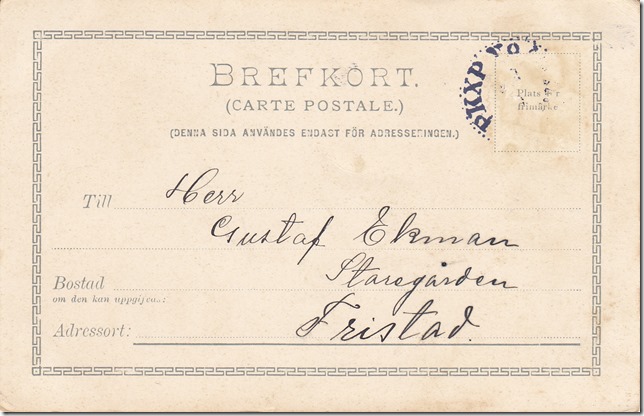 BREFKORT.
(CARTE POSTALE.)
(DENNA SIDA ANVÄNDES ENDAST FÖR ADRESSERINGEN.)
PKXP
Plats
frimärke
Till
Herr
Gustaf Ekman
Bostad
Staregården
om den kan uppgifvas:
Adressort:
Fristad.